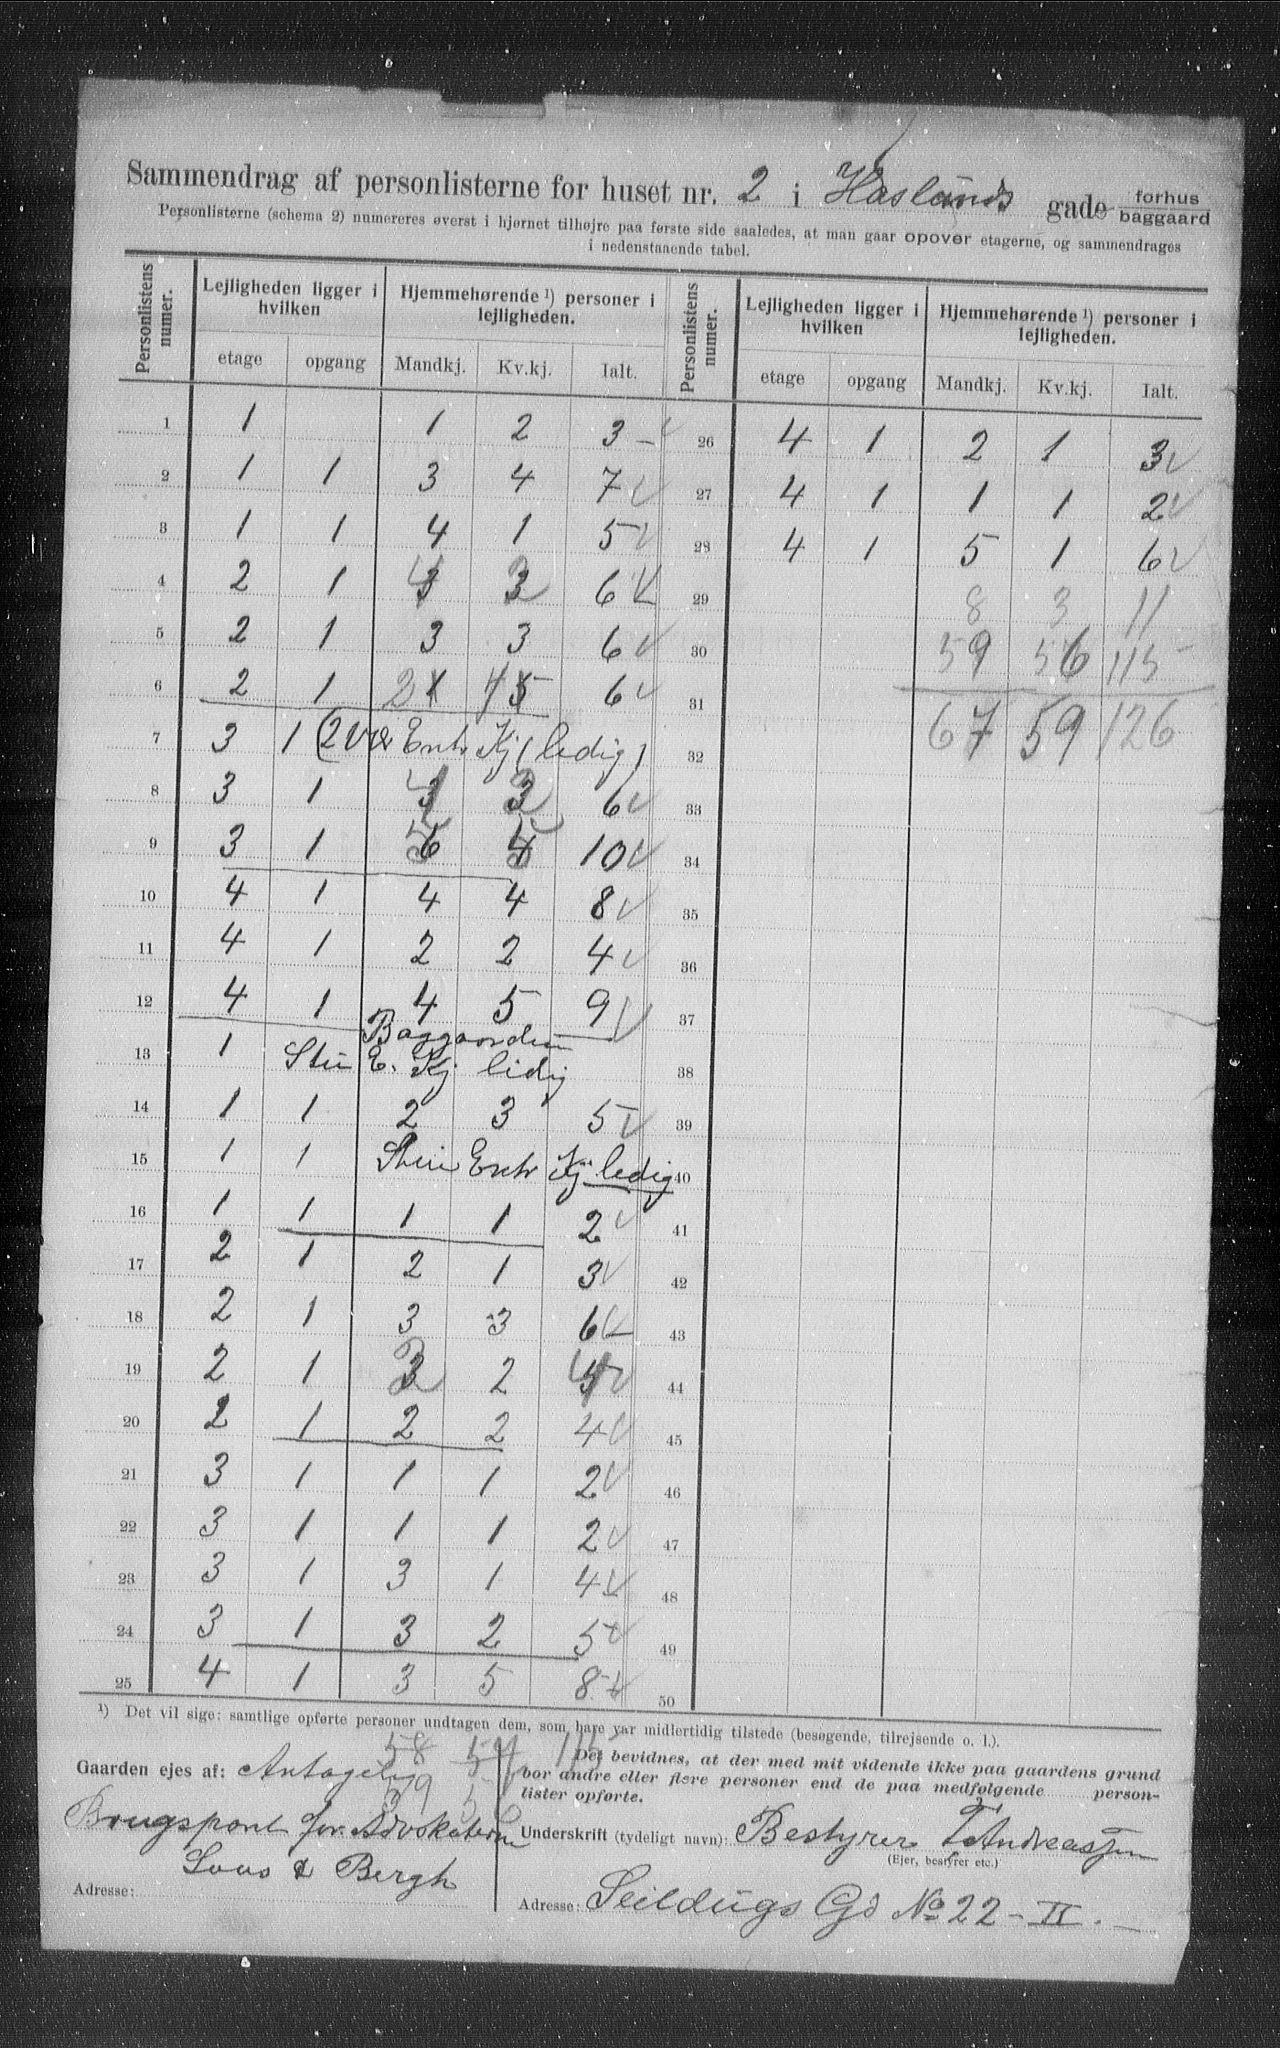 Sammendrag af personlisterne for huset nr. 2 i Haslunds gade forhus baggaard
Personlisterne (schema 2) numereres øverst i hjørnet tilhøjre paa første side saaledes, at man gaar opover etagerne, og sammendrages
i nedenstaaende tabel.
Personlistens numer. Lejligheden ligger i hvilken Hjemmehørende ¹) personer i lejligheden. Personlistens numer. Lejligheden ligger i hvilken Hjemmehørende ¹) personer i lejligheden.
etage opgang Mandkj. Kv.kj. Ialt. etage opgang Mandkj. Kv.kj. Ialt.
1 1 1 2 3 – 26 4 1 2 1 3 √
2 1 1 3 4 7 √ 27 4 1 1 1 2 √
3 1 1 4 1 5 √ 28 4 1 5 1 6 √
4 2 1 4 2 6 √ 29 8 3 11
5 2 1 3 3 6 √ 30 59 56 115
6 2 1 2 4 6 √ 31 67 59 126
7 3 1 (2 Vær Entr Kj (ledig) 32
8 3 1 4 2 6 √ 33
9 3 1 5 5 10 √ 34
10 4 1 4 4 8 √ 35
11 4 1 2 2 4 √ 36
12 4 1 4 5 9 √ 37
Baggaarden
13 1 E. Kj ledig 38
14 1 1 2 3 5 √ 39
15 1 1 Entr Kj ledig 40
16 1 1 1 1 2 √ 41
17 2 1 2 1 3 √ 42
18 2 1 3 3 6 √ 43
19 2 1 2 2 4 √ 44
20 2 1 2 2 4 √ 45
21 3 1 1 1 2 √ 46
22 3 1 1 1 2 √ 47
23 3 1 3 1 4 √ 48
24 3 1 3 2 5 √ 49
25 4 1 3 5 8 √ 50
¹) Det vil sige: samtlige opførte personer undtagen dem, som bare var midlertidig tilstede (besøgende, tilrejsende o. l.).
58 57 115
Gaarden ejes af: Antagelig
Brugspant for Advokaterne
& Bergh
Adresse:
Det bevidnes, at der med mit vidende ikke paa gaardens grund
bor andre eller flere personer end de paa medfølgende personlister opførte.
Underskrift (tydeligt navn): Bestyrer T. Andreassen
(Ejer, bestyrer etc.)
Adresse: Seildugs Gd No 22 – II. –